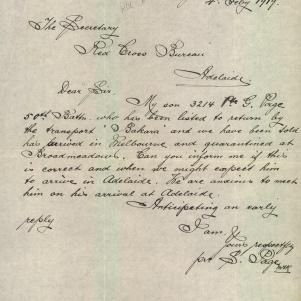 4. Feby 1919.
The Secretary
Red Cross Bureau
Adelaide.
Dear Sir.
My son 3214 Pte G. Page
50th Battn. who has been listed to return by
the transport "Karoa and we have been told
has arrived in Melbourne and quarantined at
Broadmeadows. Can you inform me if this
is correct and when we might expect him
to arrive in Adelaide. We are anxious to meet
him on his arrival at Adelaide.
Anticipating an early
reply
I am
Yours respectfy
S. Page